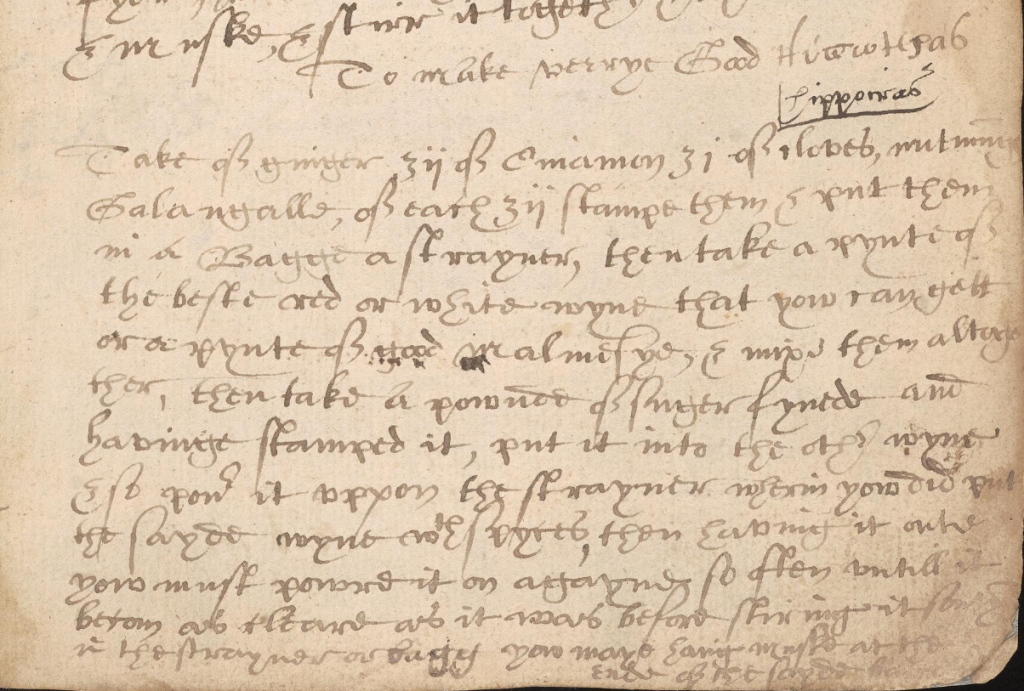 & muske, & stirr it togeth
To make verrye Good Hiccothras
hippocras
Take of ginger ʒii of Cinamon ʒi of cloves, nutming
Galangalle, of each ʒii stampe them & put them
in a Bagge a strayner, then take a pynte of
the beste red or white wyne that yow can gett
or a pynte of good Malmesye, & mixe them altoge
ther, then take a pownde of suger fynede and
havinge stamped it, put it into the oth wyne
& so powr it vppon the strayner wherin yow did put
the sayde wyne wth spyces, then having it oute
yow must powre it on agayne so ften vntill it
becom as cleare as it was before stiring it
in the strayner or bagg yow maye hang muske at the
ende of the sayde